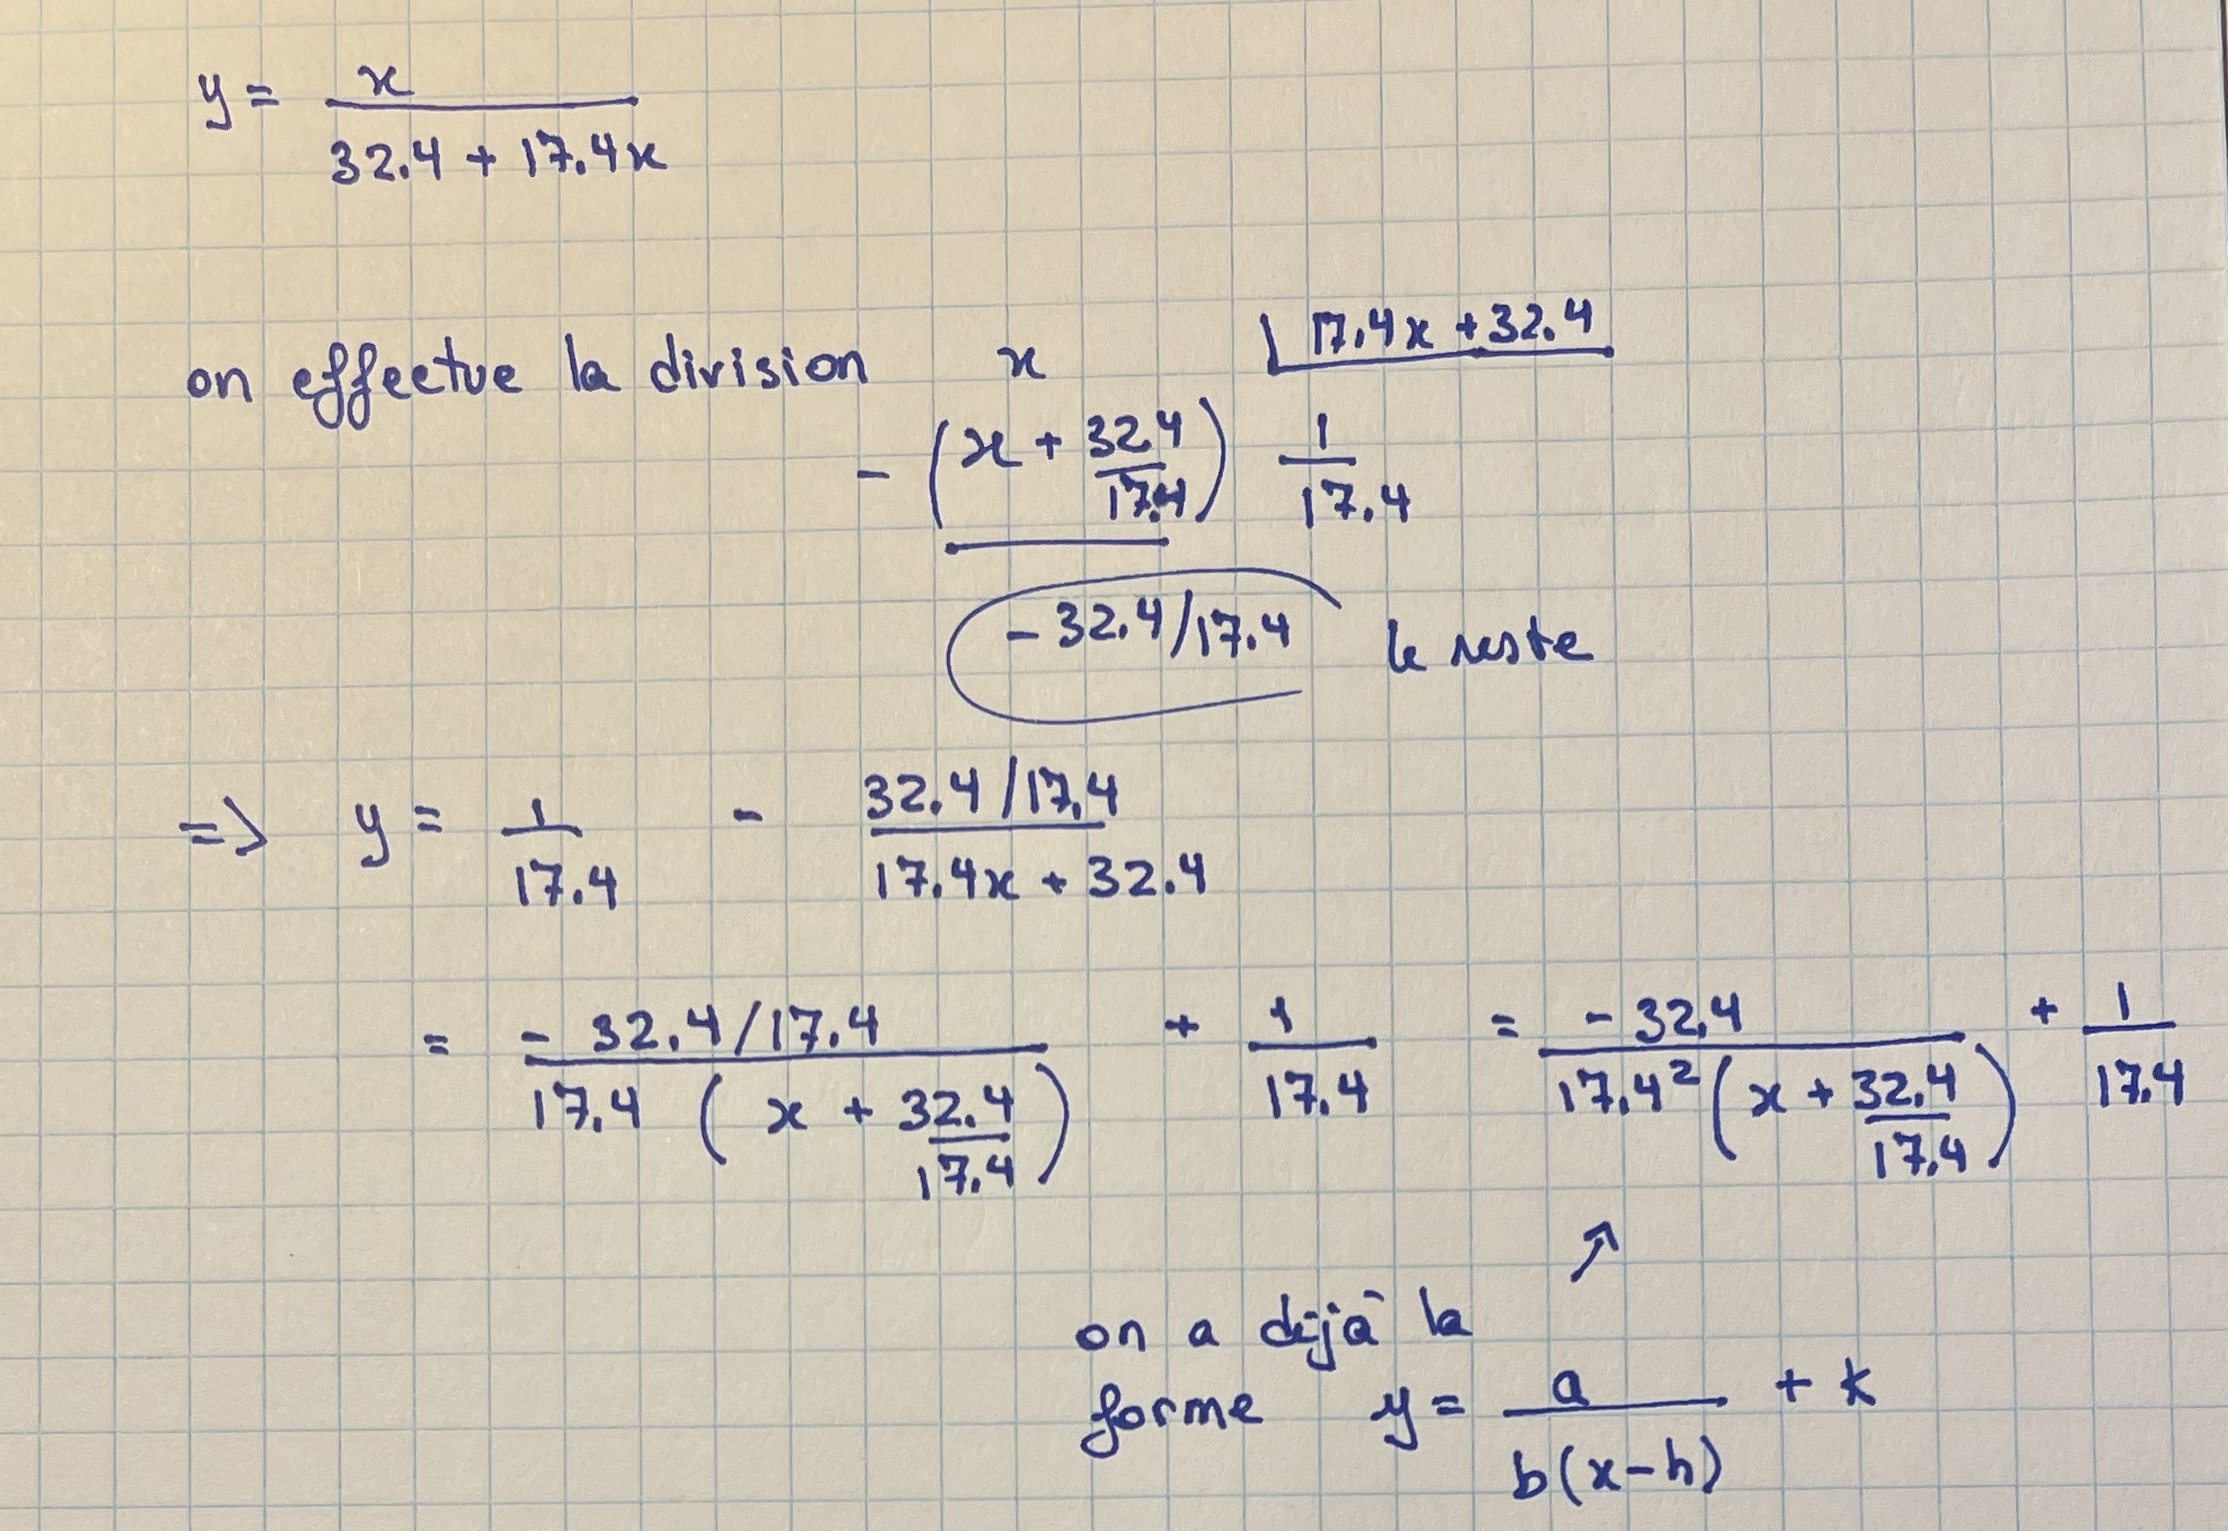 y = x / (32.4 + 17.4x)
on effectue la division x | 17.4x + 32.4
- (x + 32.4/17.4) 1/17.4
- 32.4/17.4 le reste
=> y = 1/17.4 - (32.4/17.4) / (17.4x + 32.4)
= (- 32.4/17.4) / (17.4 (x + 32.4/17.4)) + 1/17.4 = - 32.4 / (17.4² (x + 32.4/17.4)) + 1/17.4
↗
on a déjà la
forme y = a / (b(x-h)) + k